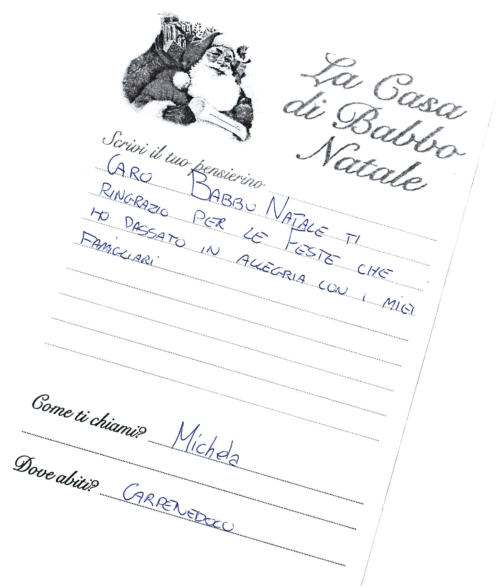 La Casa
di Babbo
Natale
Scrivi il tuo pensierino
CARO BABBO NATALE TI
RINGRAZIO PER LE FESTE CHE
HO PASSATO IN ALLEGRIA CON I MIEI
FAMIGLIARI
Come ti chiami? Michela
Dove abiti? CARPENEDOLO